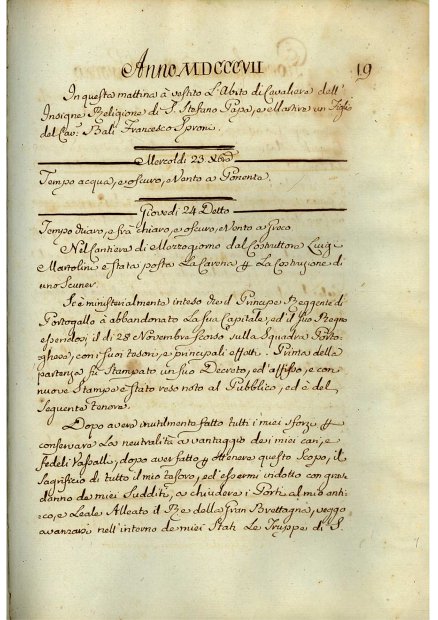 Anno MDCCCVII
19
In questa mattina à vestito L'Abito di Cavaliere dell'
Insigne Religione di S. Stefano Papa, e Martire un Figlio
del Cav: Balì Francesco Sproni.
Mercoldi 23. Xbre
Tempo acqua, e oscuro, e Vento a Ponente.
Giovedi 24 Detto
Tempo chiaro, e frà chiaro, e oscuro, e Vento a Greco
Nel Cantiere di Mezzogiorno dal Costruttore Luigi
Martolini è stata posta La Carena p La Costruzione di
uno Scuner.
Si è ministerialmente inteso che il Principe Reggente di
Portogallo à abbandonato La Sua Capitale, ed il Suo Regno
essendosi il dì 28 Novembre scorso sulla Squadra Porto-
ghese, con i suoi tesori, e principali effetti. Prima della
partenza fù Stampato un suo Decreto, ed affisso, e con
nuove Stampe è stato reso noto al Pubblico, ed è del
Seguente tenore.
Dopo avere inutilmente fatto tutti i miei sforzi p
conservare La neutralità a vantaggio dei miei cari, e
Fedeli Vassalli, dopo aver fatto p ottenere questo Scopo, il
Sagrifizio di tutto il mio tesoro, ed essermi indotto con gran
danno de miei Sudditi, a chiudere i Porti al mio anti-
co, e Leale Alleato il Re della Gran Brettagna, veggo
avanzarsi nell'interno de miei Stati Le Truppe di S.